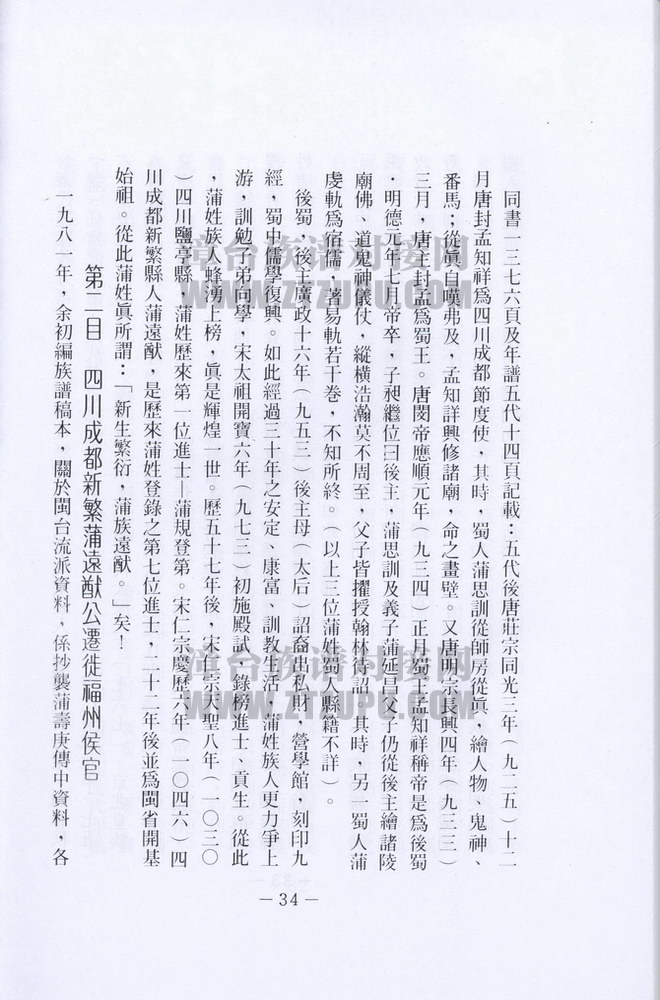 同書一三七六頁及年譜五代十四頁記載：五代後唐莊宗同光三年（九二五）十二
月唐封孟知祥爲四川成都節度使，其時，蜀人蒲思訓從師房從眞，繪人物、鬼神、
番馬；從眞自嘆弗及，孟知詳興修諸廟，命之畫壁。又唐明宗長興四年（九三三）
三月，唐主封孟爲蜀王。唐閔帝應順元年（九三四）正月蜀王孟知祥稱帝是爲後蜀
．明德元年七月帝卒，子昶繼位曰後主，蒲思訓及義子蒲延昌父子仍從後主繪諸陵
廟佛、道鬼神儀仗，縱橫浩瀚莫不周至，父子皆擢授翰林待詔，其時，另一蜀人蒲
虔軌爲宿儒，著易軌若干巻，不知所終。（以上三位蒲姓蜀人縣籍不詳）。
後蜀，後主廣政十六年（九五三）後主母（太后）詔裔出私財，營學館，刻印九
經，蜀中儒學復興。如此經過三十年之安定、康富、訓教生活，蒲姓族人更力爭上
游，訓勉子弟向學，宋太祖開寶六年（九七三）初施殿試，錄榜進士、貢生。從此
，蒲姓族人蜂湧上榜，眞是輝煌一世。歷五十七年後，宋仁宗天聖八年（一〇三〇
）四川鹽亭縣，蒲姓歷來第一位進士—蒲規登第。宋仁宗慶歷六年（一〇四六）四
川成都新繁縣人蒲遠猷，是歷來蒲姓登錄之第七位進士，二十二年後並爲閩省開基
始祖。從此蒲姓眞所謂：「新生繁衍，蒲族遠猷。」矣！
第二目　四川成都新繁蒲遠猷公遷徙福州侯官
一九八一年，余初編族譜稿本，關於閩台流派資料，係抄襲蒲壽庚傳中資料，各
—34—
漳台族谱对接网
WWW.ZTZUPU.COM
漳台族谱对接网
WWW.ZTZUPU.COM